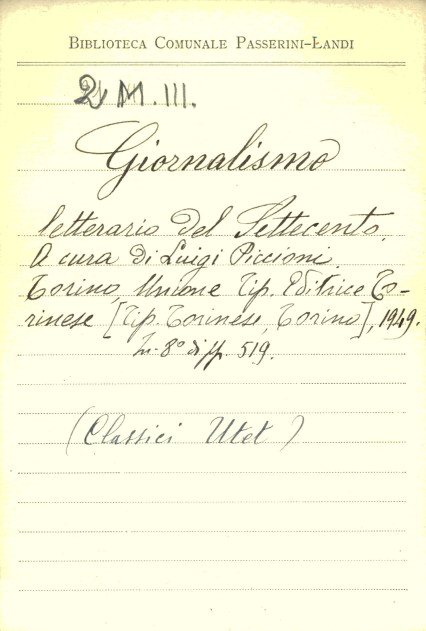 BIBLIOTECA COMUNALE PASSERINI-LANDI
2 M. III.
Giornalismo
letterario del Settecento.
A cura di Luigi Piccioni.
Torino, Unione Tip. Editrice To-
rinese [Tip. Torinese, Torino], 1949.
In-8° di pp. 519.
(Classici Utet)